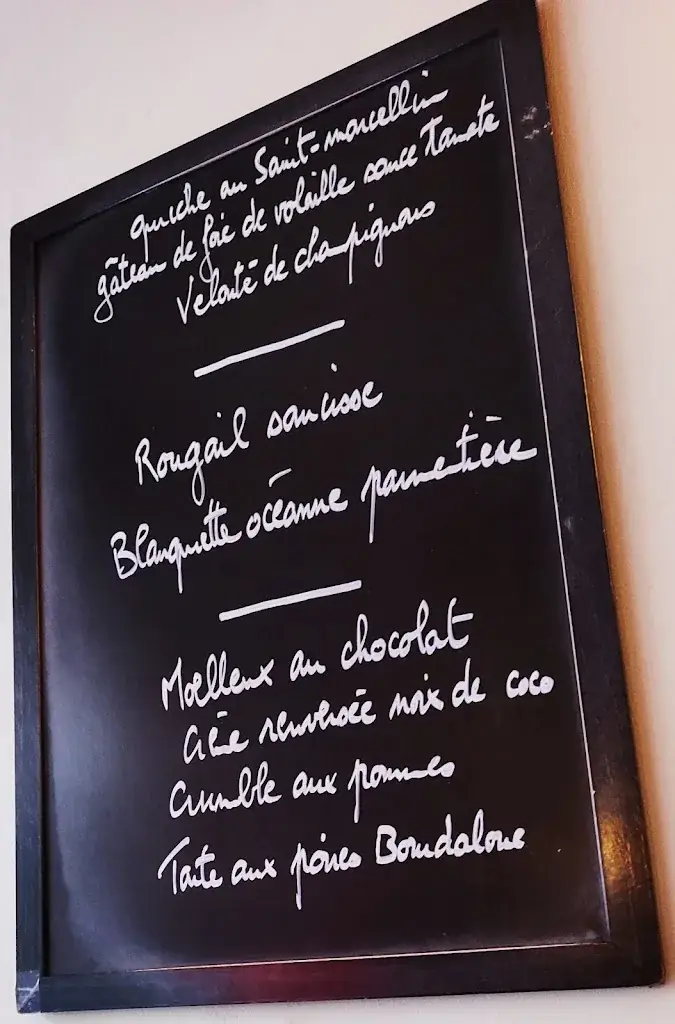 quiche au Saint-marcellin
gâteau de foie de volaille sauce tomate
Velouté de champignons
Rougail saucisse
Blanquette océanne parmentière
Moelleux au chocolat
Crème renversée noix de coco
Crumble aux pommes
Tarte aux poires Bourdaloue